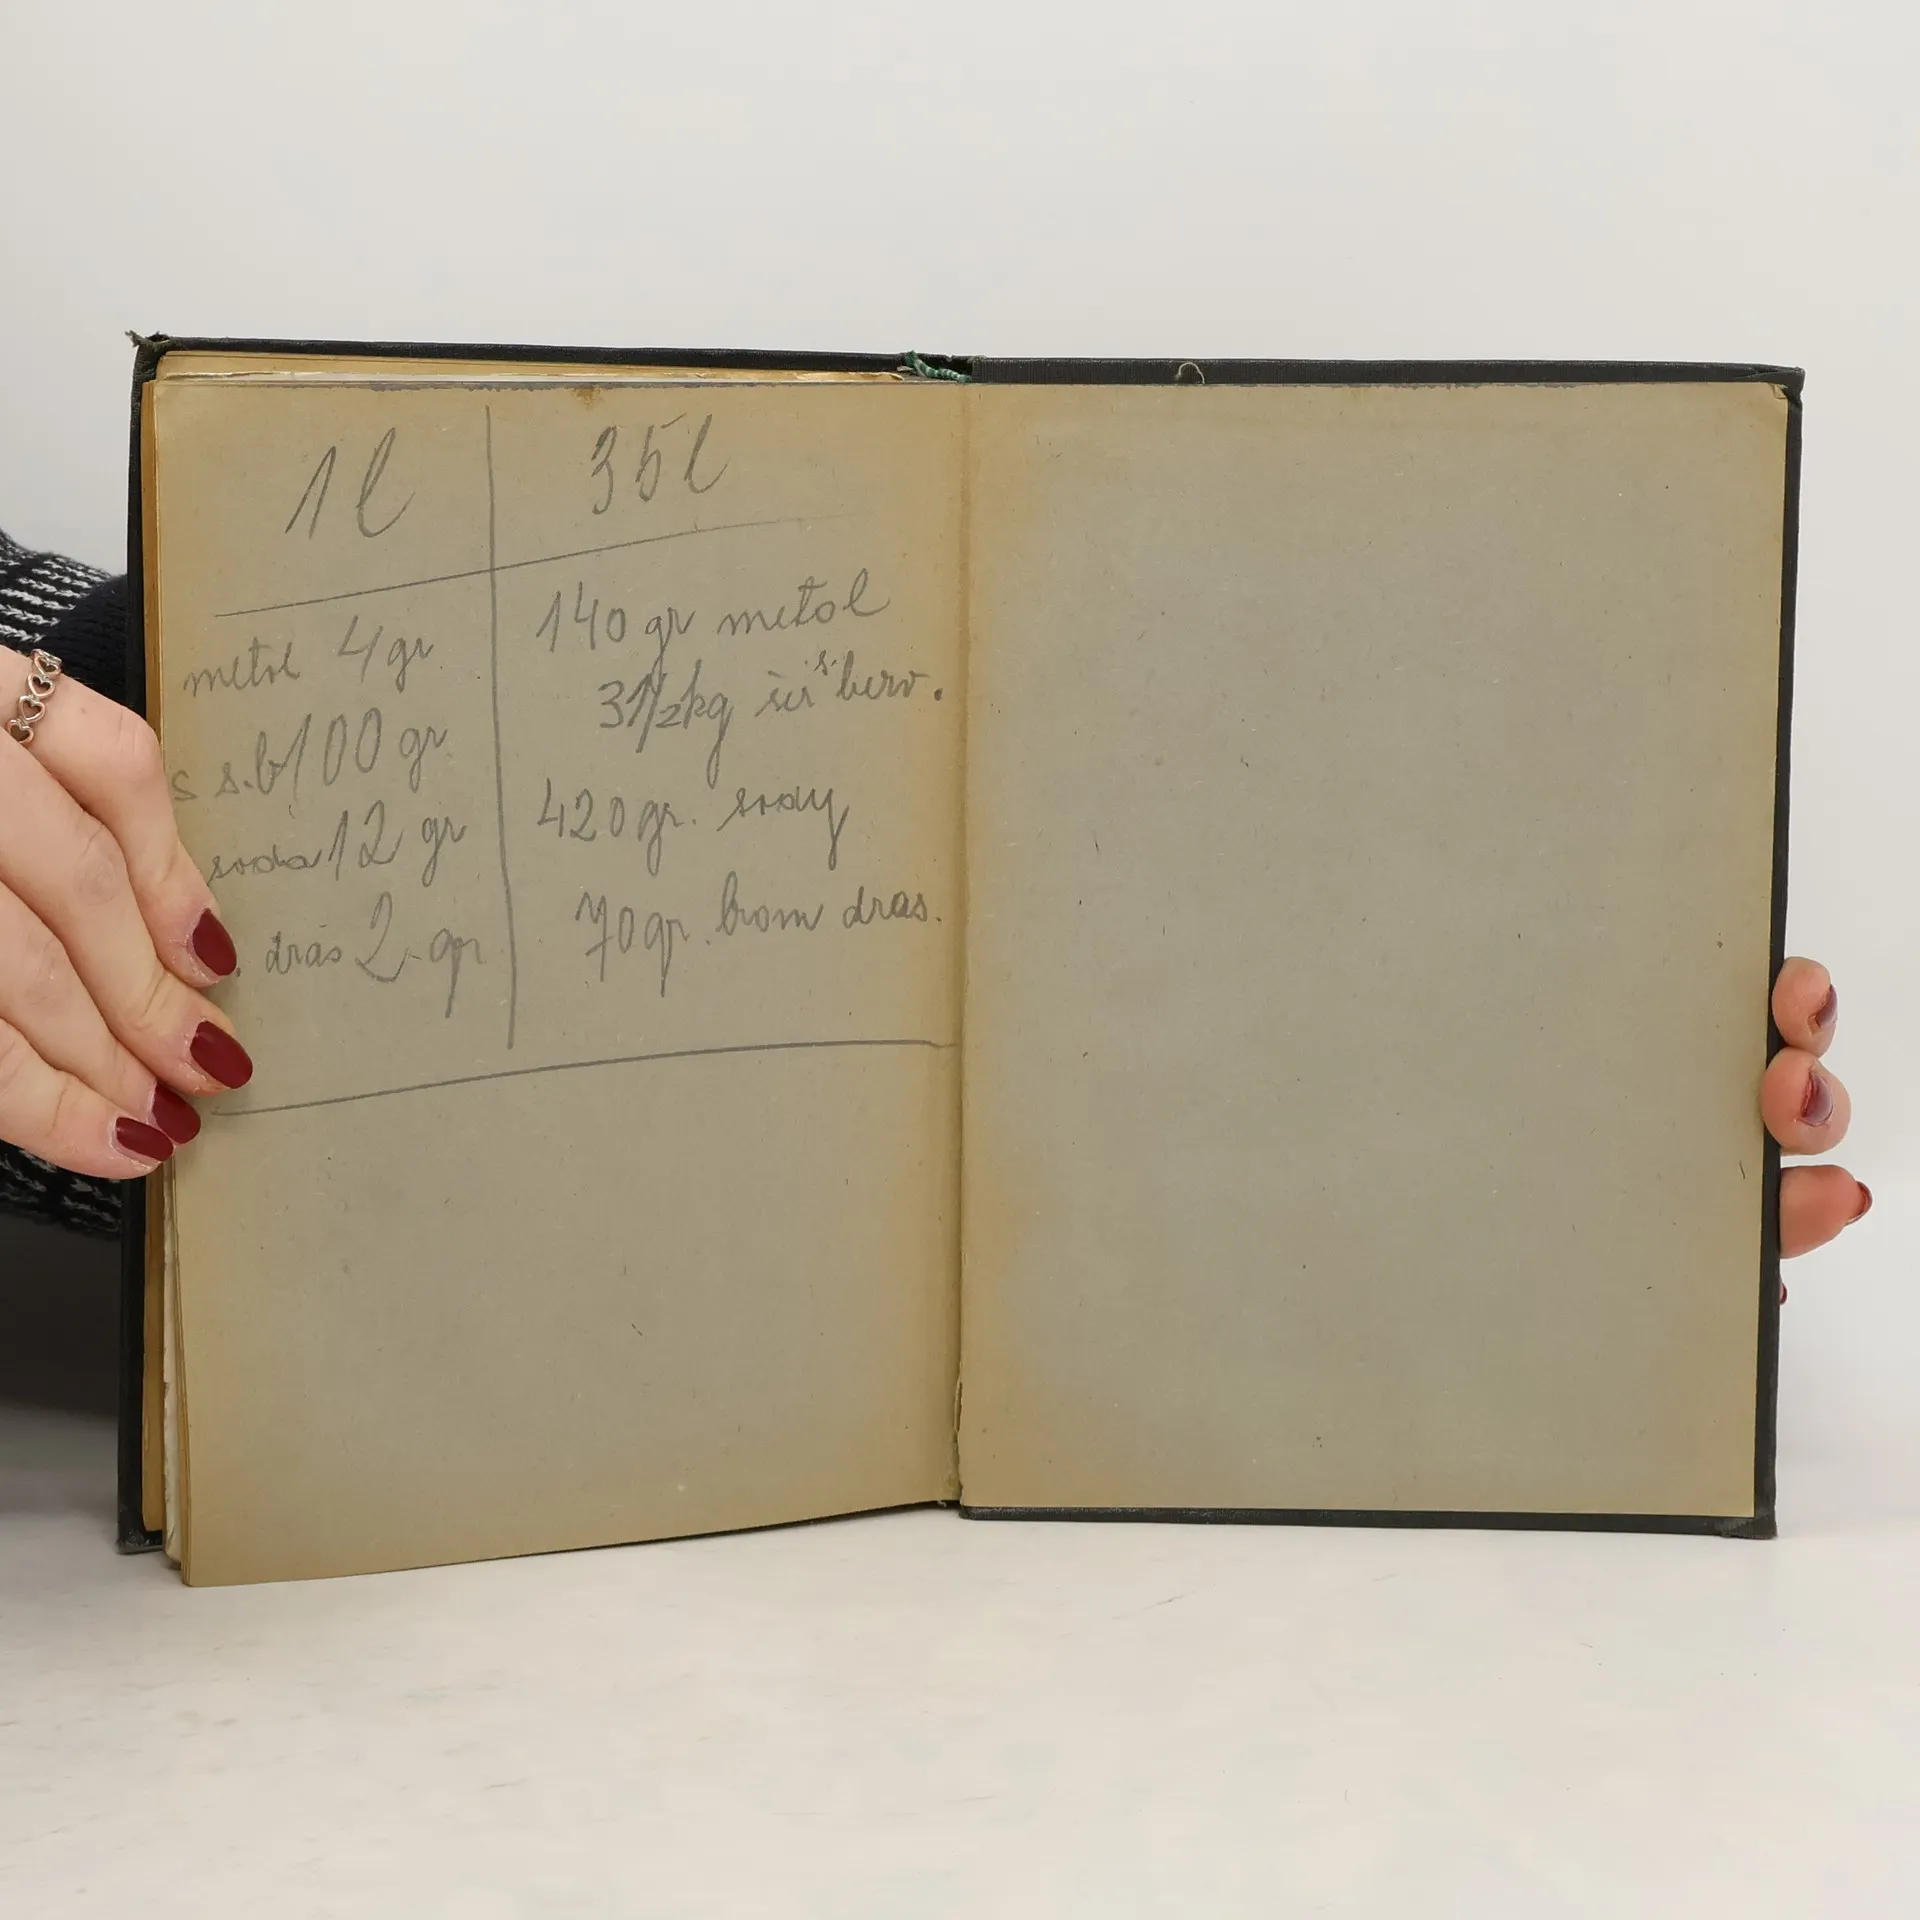 1l
35l
metol 4 gr
s s.b 100 gr.
soda 12 gr
. dras 2 gr
140 gr metol
3 1/2 kg sir s. berv.
420 gr. sody
70 gr. brom dras.